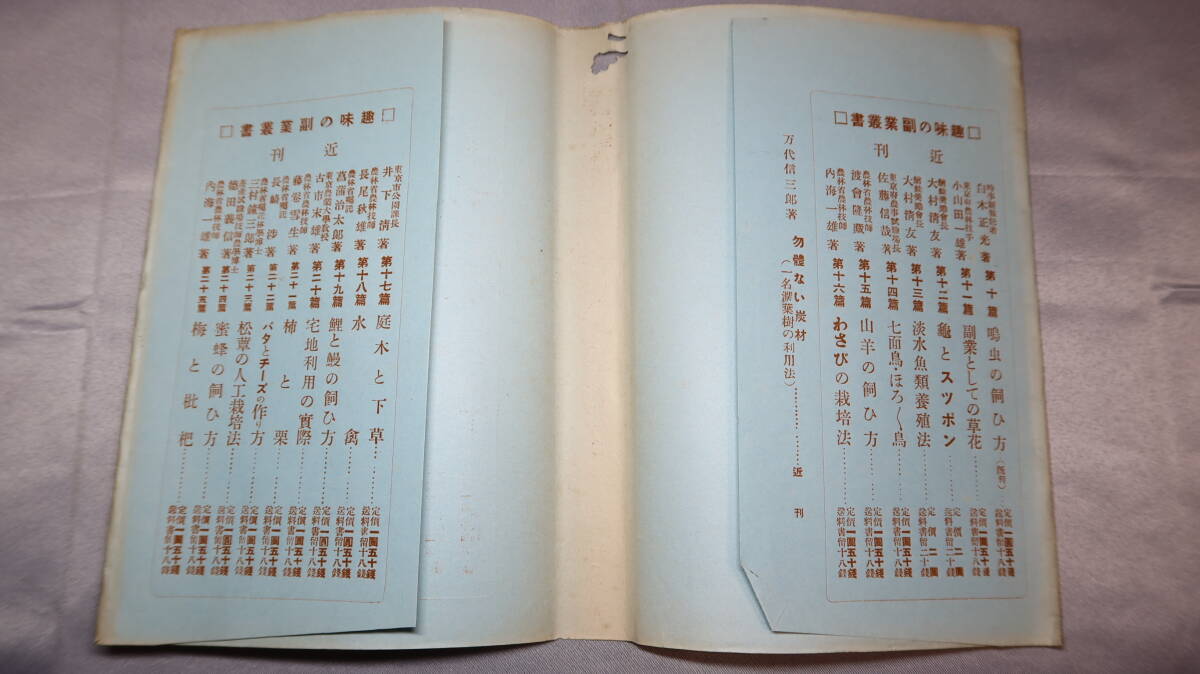 □趣味の副業叢書□
近刊
白木正光著 第十篇 鳴虫の飼ひ方(既刊)
定價一圓五十錢
送料書留十八錢
小山田一雄著 第十一篇 副業としての草花
定價一圓五十錢
送料書留十八錢
大村清友著 第十二篇 龜とスツポン
定價二圓
送料書留二十錢
大村清友著 第十三篇 淡水魚類養殖法
定價二圓
送料書留二十錢
東京府農事試驗場長
佐藤信哉著 第十四篇 七面鳥・ほろ〱鳥
定價一圓五十錢
送料書留十八錢
農林省農林技師
渡會隆藏著 第十五篇 山羊の飼ひ方
定價一圓五十錢
送料書留十八錢
農林省農林技師
內海一雄著 第十六篇 わさびの栽培法
定價一圓五十錢
送料書留十八錢
万代信三郎著 勿體ない炭材
(一名濶葉樹の利用法)…………近刊
□趣味の副業叢書□
近刊
東京市公園課長
井下清著 第十七篇 庭木と下草
定價一圓五十錢
送料書留十八錢
農林省農林技師
長尾秩雄著 第十八篇 水禽
定價一圓五十錢
送料書留十八錢
農林省囑託
菖蒲治太郎著 第十九篇 鯉と鰻の飼ひ方
定價一圓五十錢
送料書留十八錢
東京農業大學敎授
古市末雄著 第二十篇 宅地利用の實際
定價一圓五十錢
送料書留十八錢
農林省農林技師
藤卷雪生著 第二十一篇 柿と栗
定價一圓五十錢
送料書留十八錢
農林省囑託
長崎渉著 第二十二篇 バタとチーズの作り方
定價一圓五十錢
送料書留十八錢
三村鐘三郎著 第二十三篇 松茸の人工栽培法
定價一圓五十錢
送料書留十八錢
德田義信著 第二十四篇 蜜蜂の飼ひ方
定價一圓五十錢
送料書留十八錢
農林省農林技師
內海一雄著 第二十五篇 梅と枇杷
定價一圓五十錢
送料書留十八錢